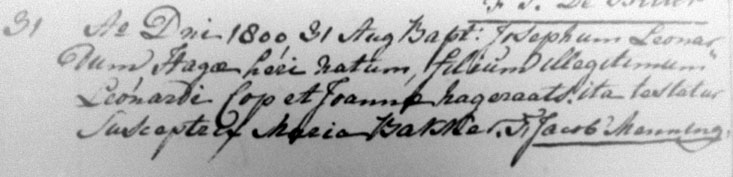 F. J. De
31 Ao Dni 1800 31 Aug Bapt: Josephum Leonar
dum, Hagæ heri natum, filium illegitimum
Leonardi Cop et Joannæ hageraats. ita testatur
Susceptrix Maria Bakker. Fr Jacob Menning.